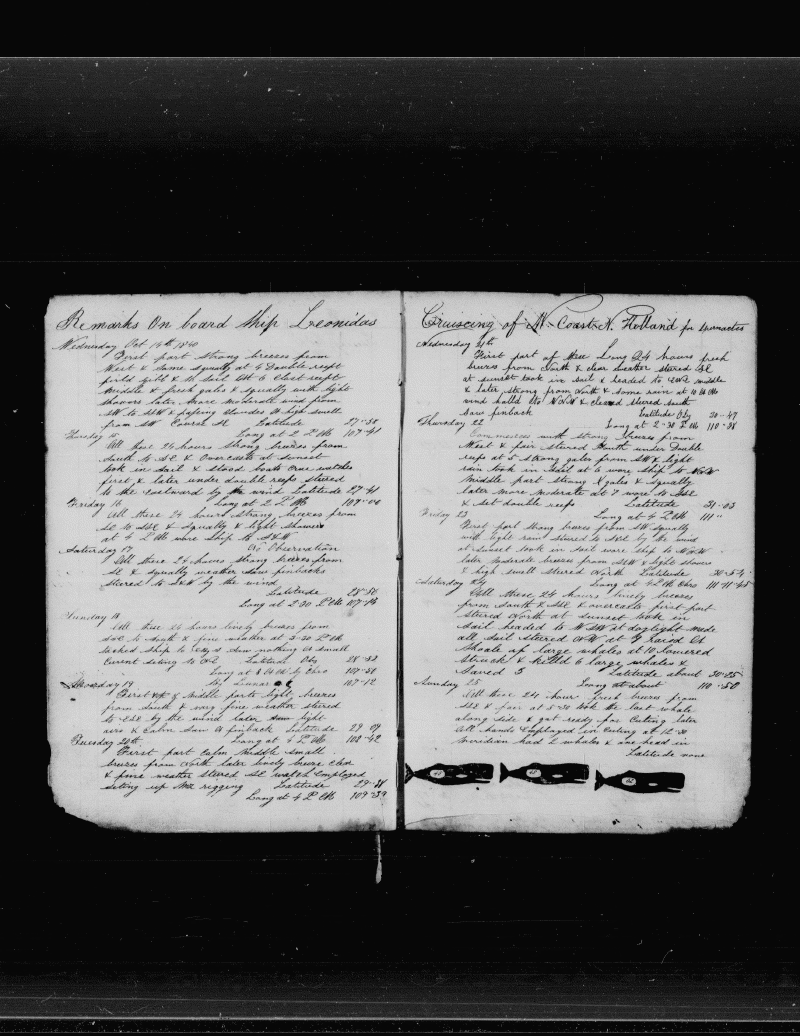 Remarks On board Ship Leonidas
Wednesday Oct 14th 1840
First part Strong breezes from
West & Some Squally at 4 Double reeft
Middle & fresh gales & squally with light
showers later more moderate wind from
SW to SSW & passing clouds A high swell
from SW Course Latitude 27-58
Thursday 15 Long at 2 P M 107-41
All these 24 hours Strong breezes from
South to SE & Overcast at sunset
took in Sail & Stood boats crew watches
first, & later under double reefs stered
to the Eastward by the wind Latitude 27-41
Friday 16 Long at 2 P M
All these 24 hours Strong breezes from
SE to SSE & Squally & light Showers
at 4 P M wore Ship to SSW
Saturday 17 No Observation
All these 24 hours Strong breezes from
SE & Squally weather Saw finbacks
stered to SSW by the wind
Latitude 28-50
Long at 2-30 P M
Sunday 18
All these 24 hours lively breezes from
SSE to South & fine weather at 3-30 P M
tacked Ship to saw nothing A small
Current seting to Latitude Obs
Long at by Chro 107-28
Monday 19 By Lunar 107-12
First & Middle parts light breezes
from South & very fine weather stered
to ESE by the wind later light
airs & Calm Saw A finback Latitude 29-09
Tuesday 20th Long at 4 P M 108-42
First part Calm Middle Small
breezes from North later lively breeze
& fine weather Stered SE watch Employed
seting up rigging Latitude 29-38
Long at 4 P M 109-39
Cruiscing of N Coast N. Holland for Spermacties
Wednesday 21th
First part of these Long 24 hours fresh
breezes from North & clear weather Stered SE
at sunset took in sail & headed to middle
& later strong from North & some rain at 10
wind halld to NNW & cleared stered South
Saw finback Latitude Obs 30-47
Thursday 22 Long at 2-30 P M 110-38
Commences with Strong breezes from
West & fair Stered South under Double
reefs at 5 Strong gales from SW & light
rain took in Sail at 6 wore Ship to NNW
Middle part strong gales & Squally
later more moderate at 7 wore to SSE
& set double reefs Latitude 31-03
Friday 23 Long at 4 P M 111 "
First part Strong breezes from SW Squally
with light rain stered to SSE by the wind
at Sunset took in Sail wore Ship to NNW
later moderate breezes from SSW & light showers
& high swell Stered North Latitude 30-54
Saturday 24 Long at 4 P M Chro
All these 24 hours lively breezes
from South & SSE & overcast first part
Stered North at sunset took in
Sail headed to WSW at daylight made
all Sail stered NW at 9 raised A
Shoale of large whales at 10 Lowered
Struck & killd 6 large whales &
Saved 5 Latitude about 30-25
Sunday 25 Long at about 110-50
All these 24 hour fresh breezes from
SSE & fair at 5-30 took the last whale
along side & got ready for Cutting later
All hands Employed in Cutting at 12-30
Meridian had 2 whales & one head in
Latitude none